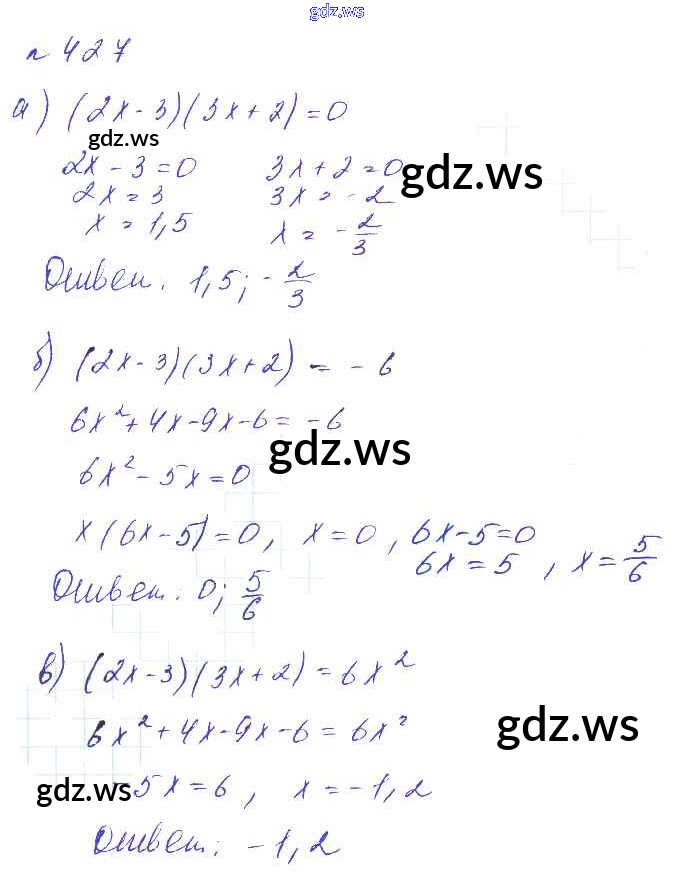 gdz.ws
№ 427
а) (2x-3)(3x+2)=0
gdz.ws
2x-3=0 3x+2=0 gdz.ws
2x=3 3x=-2
x=1,5 x=-2/3
Ответ: 1,5; -2/3
б) (2x-3)(3x+2)=-6
6x²+4x-9x-6=-6
gdz.ws
6x²-5x=0
x(6x-5)=0, x=0, 6x-5=0
6x=5, x=5/6
Ответ: 0; 5/6
в) (2x-3)(3x+2)=6x²
6x²+4x-9x-6=6x² gdz.ws
gdz.ws -5x=6, x=-1,2
Ответ: -1,2